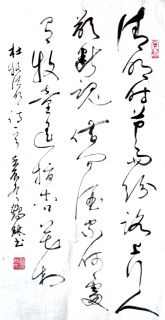 清明时节雨纷纷路上行人
欲断魂借问酒家何处
有牧童遥指杏花村
杜牧清明诗
书